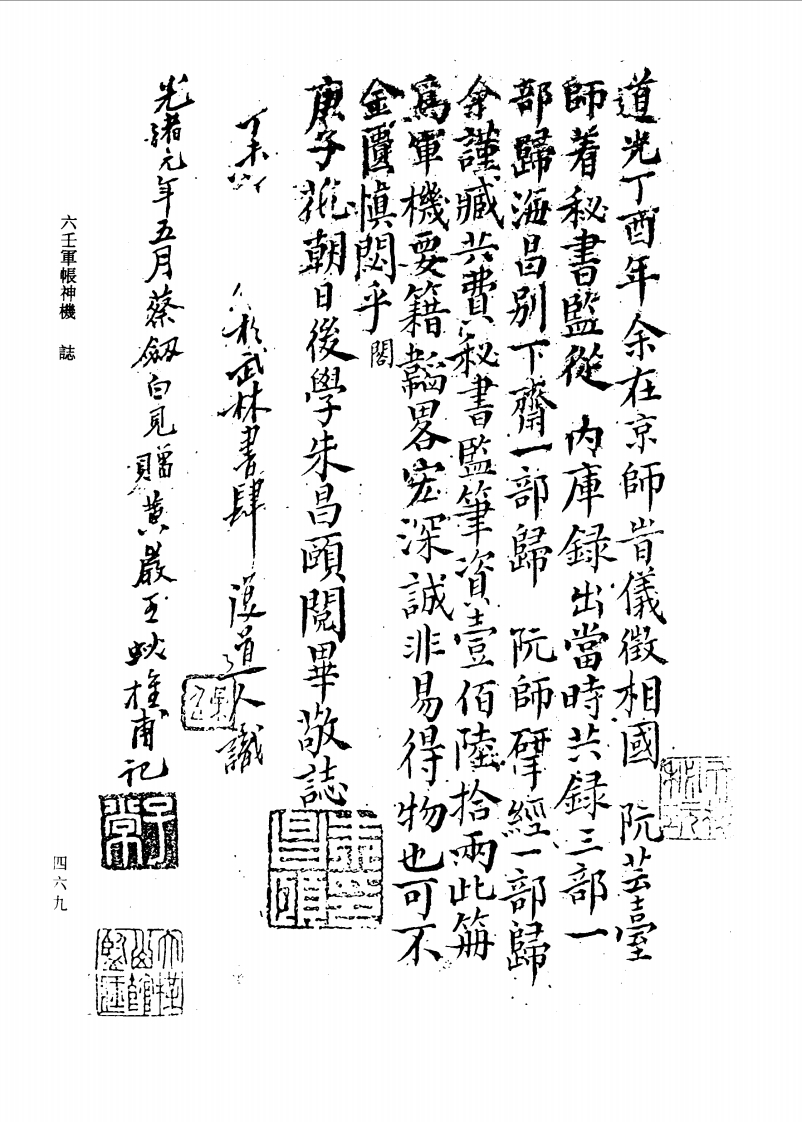 道光丁酉年余在京師旹儀徵相國　阮芸臺
師着秘書監從　內庫録出當時共録三部一
部歸海昌別下齋一部歸　阮師揅經一部歸
余謹藏共費秘書監筆資壹佰陸拾兩此冊
爲軍機要籍韜畧宏深誠非易得物也可不
金匱愼閟乎
閣
庚子花朝日後學朱昌頤閱畢敬誌
丁未　　於武林書肆　道人識
光緒元年五月蔡劔白見贈黃巖王蜺樵甫記
朱昌頤
六壬軍帳神機　誌
四六九